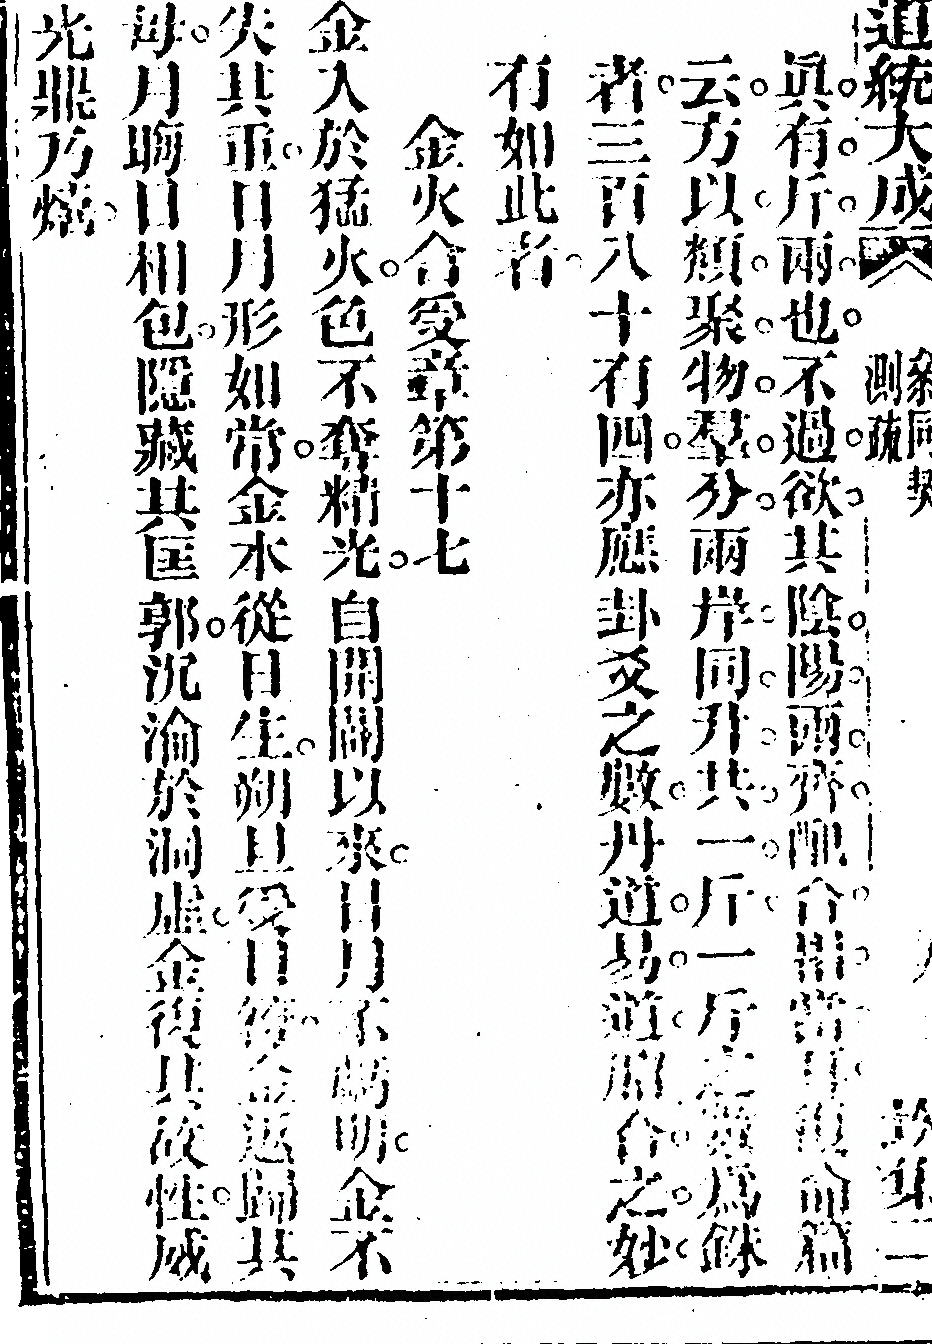 道統大成 參同契 測疏
眞有斤兩也不過欲其陰陽兩齊配合相當耳復命篇
云方以類聚物羣分兩岸同升共一斤一斤之數爲銖
者三百八十有四亦應卦爻之數丹道易道脗合之妙
有如此者
金火含受章第十七
金入於猛火色不奪精光自開闢以來日月不虧明金不
失其重日月形如常金水從日生朔旦受日符金返歸其
母月晦日相包隱藏其匡郭沉淪於洞虛金復其故性威
光鼎乃熺